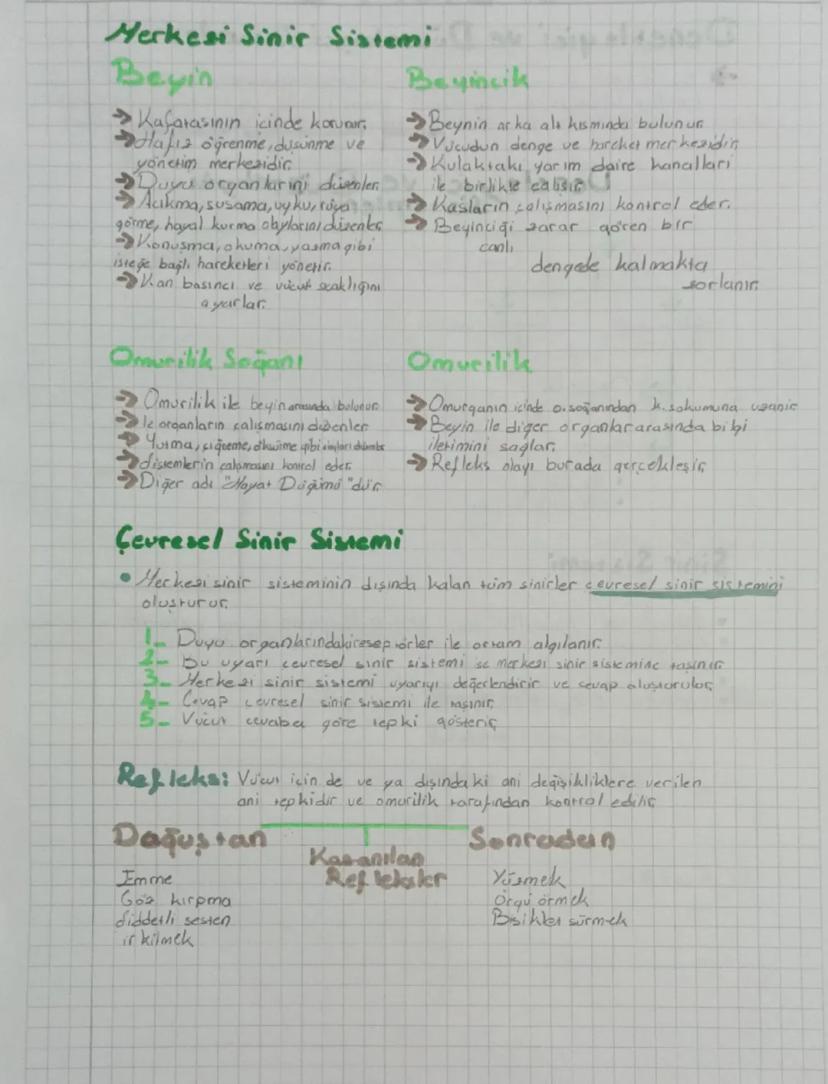 Merkesi Sinir Sistemi
Beyin
→ Kafatasının içinde korunur.
→ Hafıza öğrenme, düşünme ve
yönetim merkezidir.
→ Duyu organlarını düzenler.
→ Acıkma, susama, uyku, rüya
görme, hayal kurma olaylarını düzenler
→ Konuşma, okuma, yazma gibi
isteğe bağlı hareketleri yönetir.
→ Kan basıncı ve vücut sıcaklığını
ayarlar.
Beyincik
→ Beynin arka alt kısmında bulunur.
→ Vücudun denge ve hareket merkezidir.
→ Kulaktaki yarım daire kanalları
ile birlikte çalışır.
→ Kasların çalışmasını kontrol eder.
→ Beyinciği zarar gören bir
canlı
dengede kalmakta
zorlanır.
Omurilik Soğanı
→ Omurilik ile beyin arasında bulunur
→ İç organların çalışmasını düzenler
→ Yutma, çiğneme, öksürme gibi olayları düzenler
→ Sistemlerin çalışmasını kontrol eder.
→ Diğer adı "Hayat Düğümü"dür.
Omurilik
→ Omurganın içinde o.soğanından k.sokumuna uzanır
→ Beyin ile diğer organlar arasında bilgi
iletimini sağlar.
→ Refleks olayı burada gerçekleşir.
Çevresel Sinir Sistemi
• Merkezi sinir sisteminin dışında kalan tüm sinirler çevresel sinir sistemini
oluşturur.
1_ Duyu organlarındaki reseptörler ile ortam algılanır.
2_ Bu uyarı çevresel sinir sistemi merkezi sinir sistemine taşınır.
3_ Merkezi sinir sistemi uyarıyı değerlendirir ve cevap oluşturulur.
4_ Cevap çevresel sinir sistemi ile taşınır.
5_ Vücut cevaba göre tepki gösterir.
Refleks: Vücut için de ve ya dışındaki ani değişikliklere verilen
ani tepkidir ve omurilik tarafından kontrol edilir.
Doğuştan
Kazanılan
Refleksler
Sonradan
Emme
Göz kırpma
Şiddetli sesten
irkilmek
Yüzmek
Örgü örmek
Bisiklet sürmek